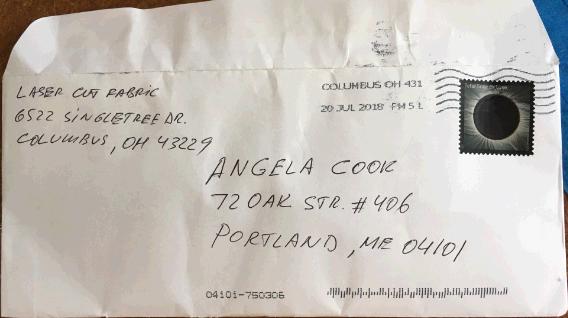 LASER CUT FABRIC
6522 SINGLETREE DR.
COLUMBUS, OH 43229
COLUMBUS OH 431
20 JUL 2018 PM 5 L
ANGELA COOK
72 OAK STR. # 406
PORTLAND, ME 04101
04101-750306